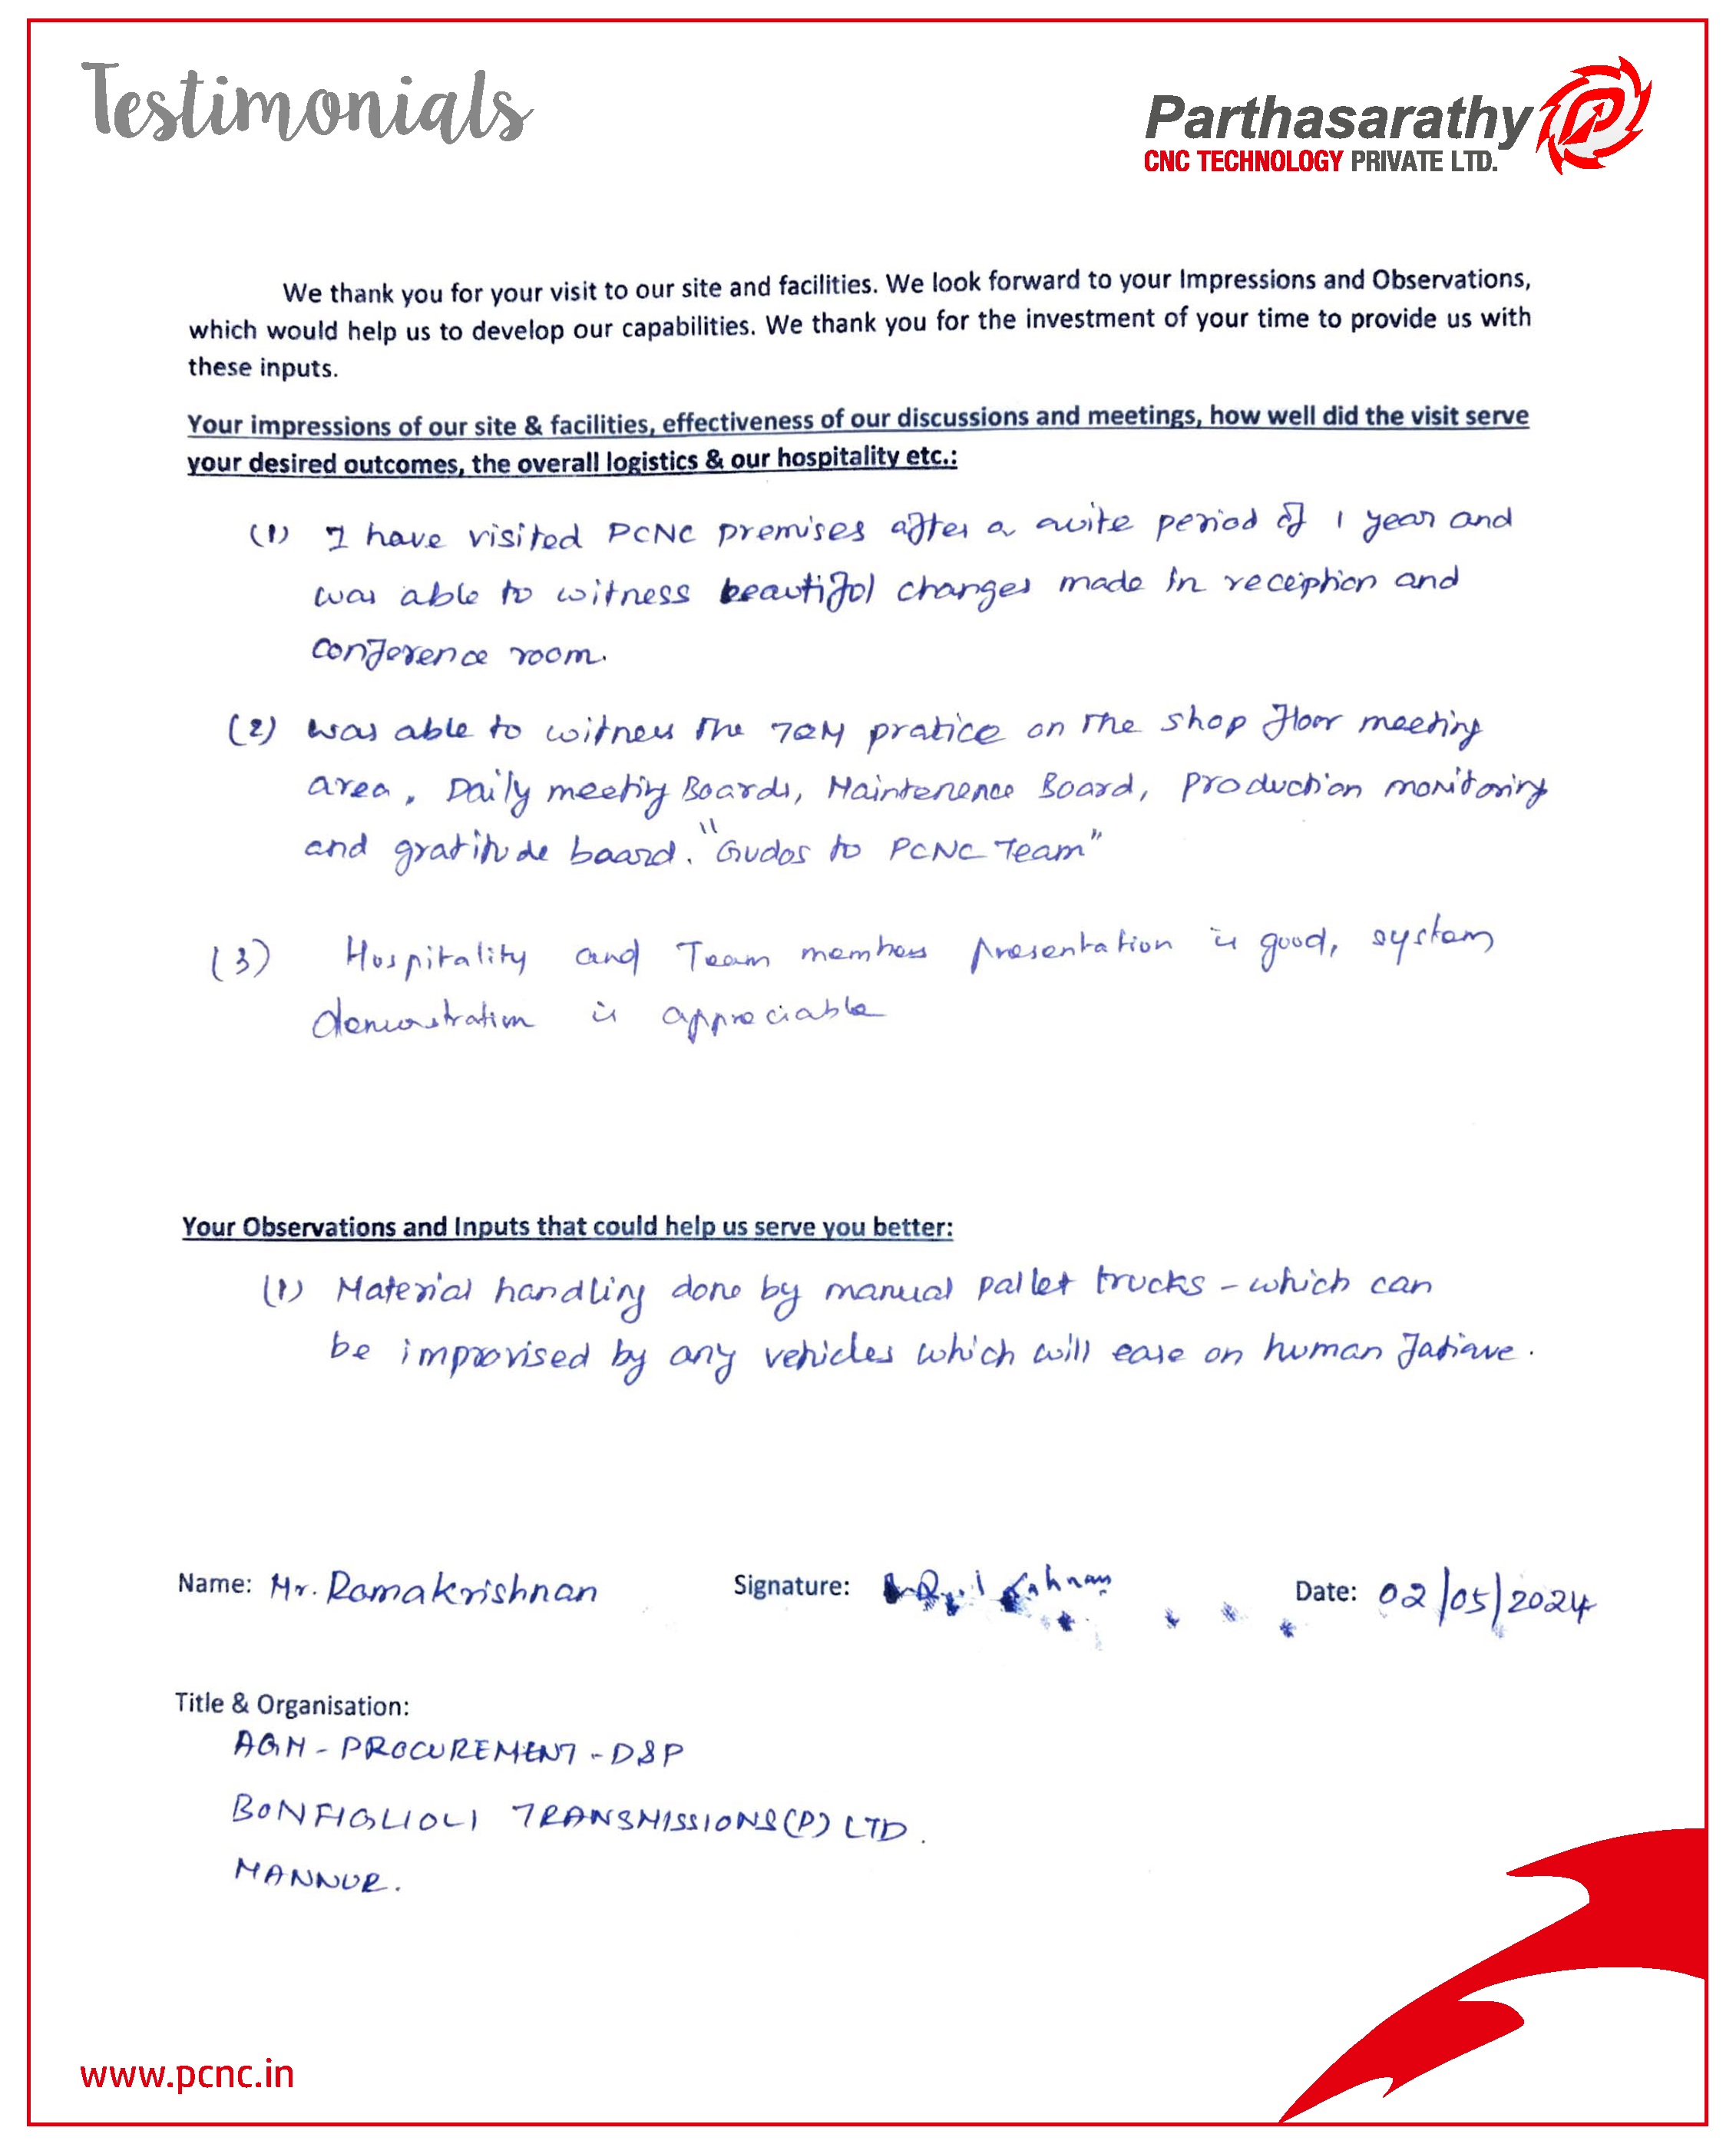 Testimonials
Parthasarathy
CNC TECHNOLOGY PRIVATE LTD.
We thank you for your visit to our site and facilities. We look forward to your Impressions and Observations,
which would help us to develop our capabilities. We thank you for the investment of your time to provide us with
these inputs.
Your impressions of our site & facilities, effectiveness of our discussions and meetings, how well did the visit serve
your desired outcomes, the overall logistics & our hospitality etc.:
(1) I have visited PCNC premises after a quite period of 1 year and
was able to witness beautiful changes made in reception and
conference room.
(2) was able to witness the TQM pratice on the shop floor meeting
area, Daily meeting Boards, Maintenence Board, production monitoring
and gratitude board. "Gudos to PCNC Team"
(3) Hospitality and Team members presentation is good, system
demonstration is appreciable
Your Observations and Inputs that could help us serve you better:
(1) Material handling done by manual pallet trucks - which can
be improvised by any vehicles which will ease on human fatique.
Name: Mr. Ramakrishnan
Signature:
Date: 02/05/2024
Title & Organisation:
AGM - PROCUREMENT - D&P
BONFIGLIOLI TRANSMISSIONS (P) LTD.
MANNUR.
www.pcnc.in